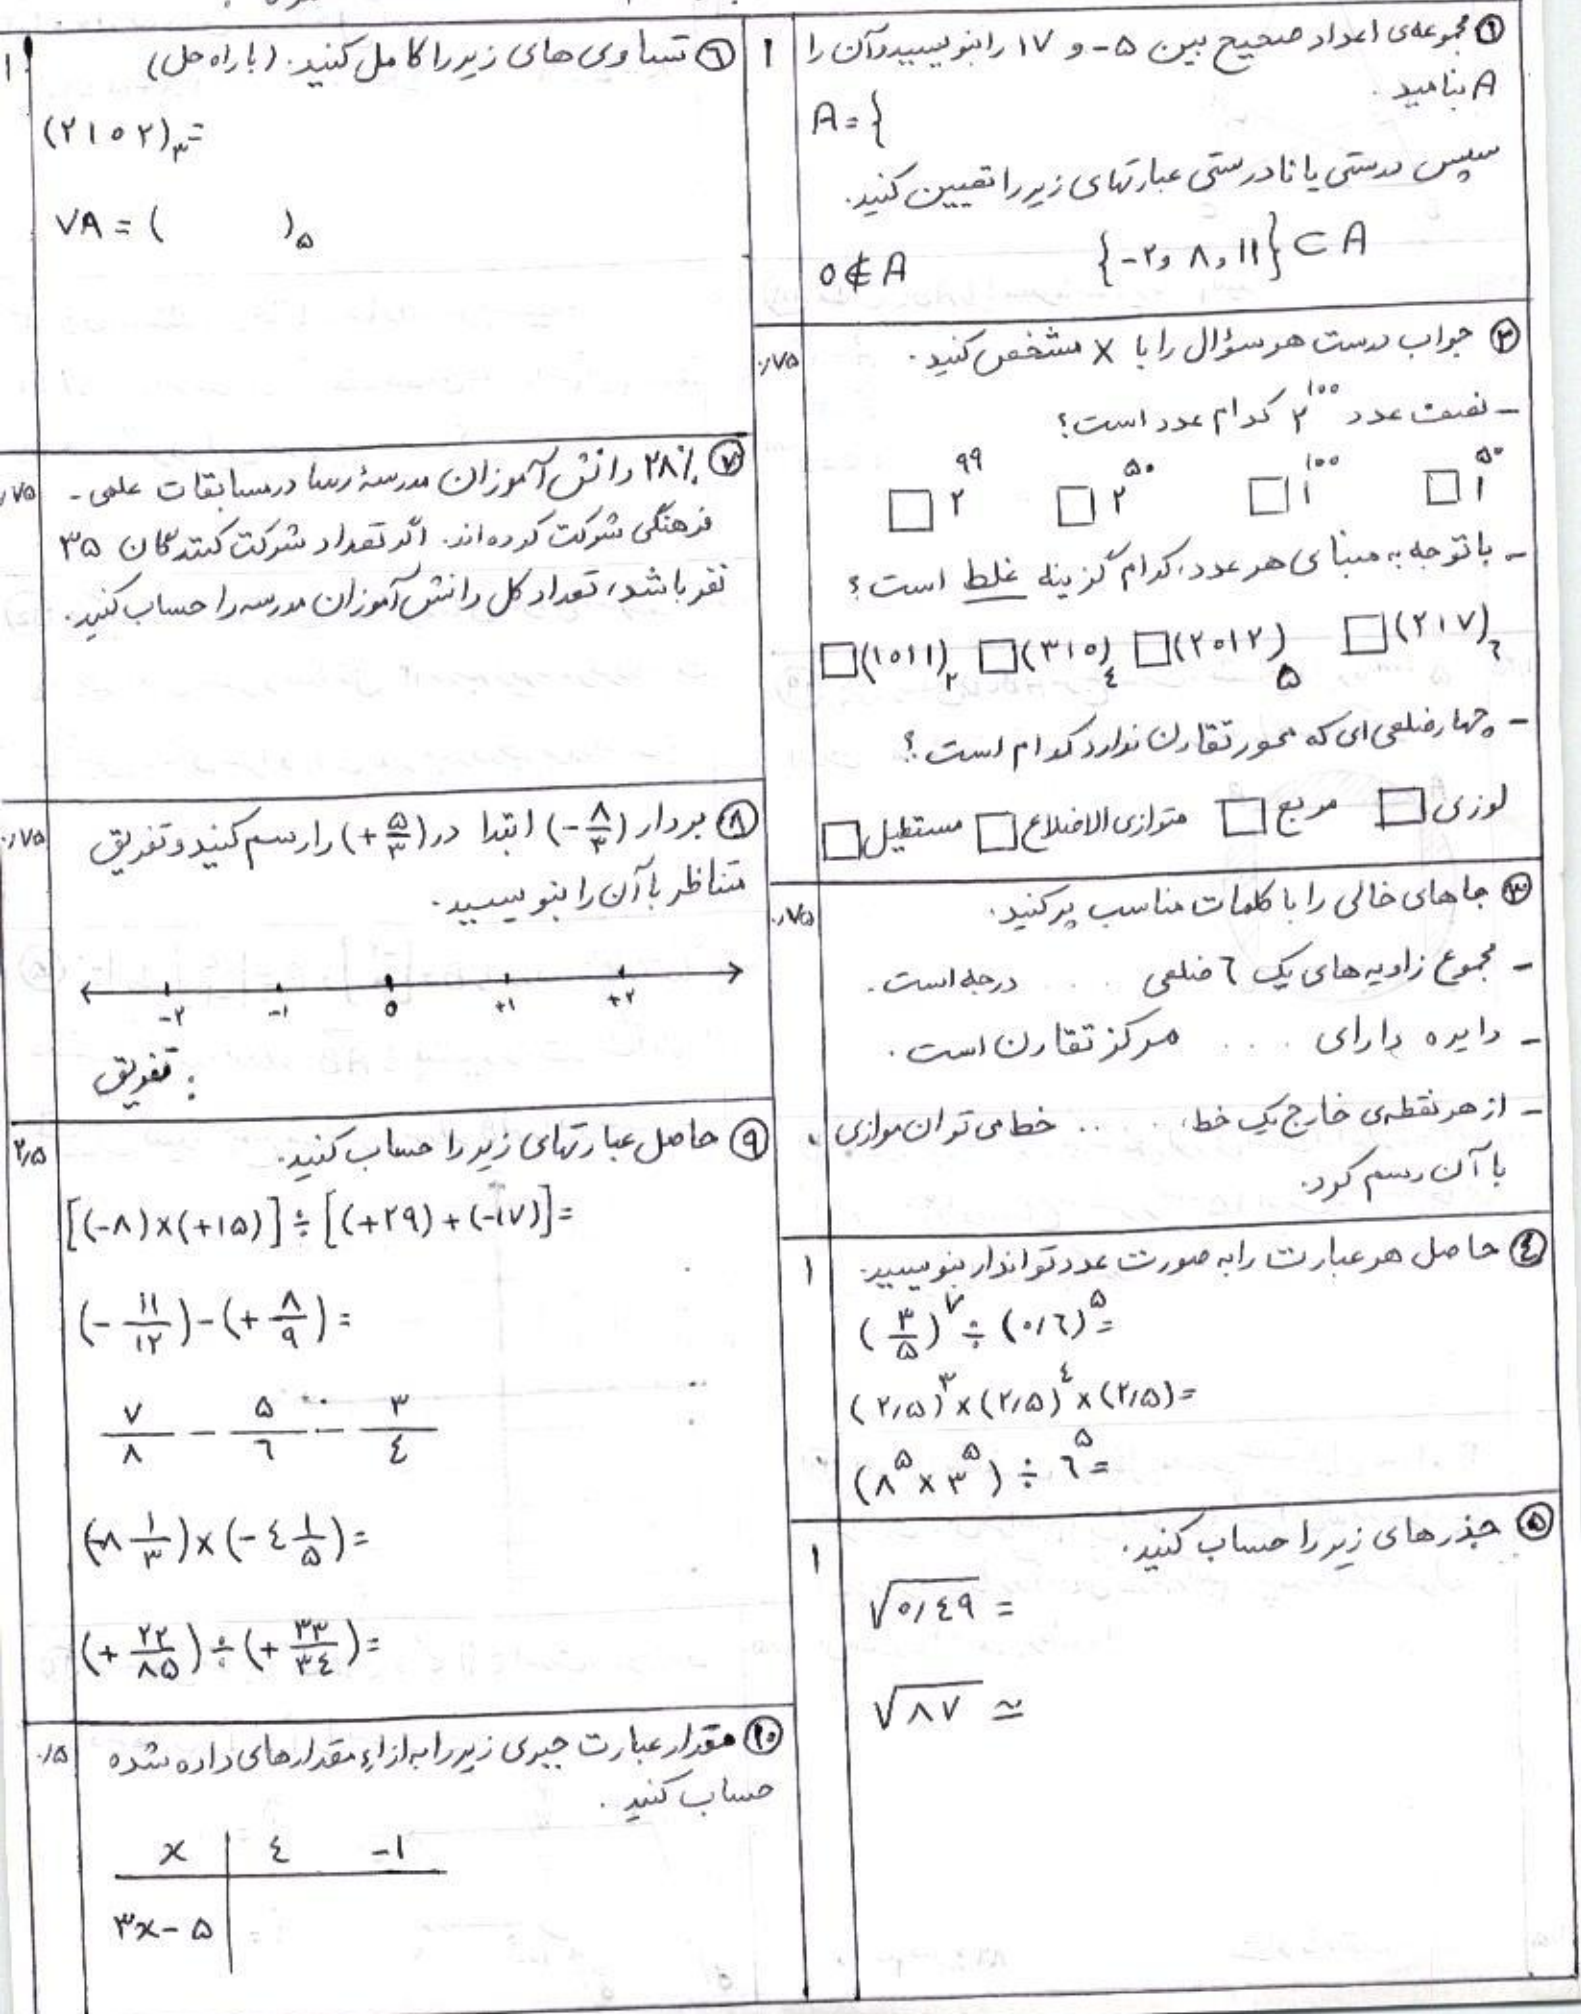 ① مجموعه‌ی اعداد صحیح بین ۵- و ۱۷ را بنویسید و آن را
A بنامید.
A = {
سپس درستی یا نادرستی عبارتهای زیر را تعیین کنید.
{-۲ و ۸ و ۱۱} ⊂ A
۰ ∉ A
۱
② جواب درست هر سؤال را با x مشخص کنید.
۰/۷۵
- نصف عدد ۲^۱۰۰ کدام عدد است؟
□ ۱^۵۰ □ ۱^۱۰۰ □ ۲^۵۰ □ ۲^۹۹
- با توجه به مبنای هر عدد، کدام گزینه غلط است؟
□ (۲۱۷)_۶ □ (۲۰۱۲)_۵ □ (۳۱۰)_۴ □ (۱۰۱۱)_۲
- چهارضلعی ای که محور تقارن ندارد کدام است؟
لوزی □ مربع □ متوازی الاضلاع □ مستطیل □
③ جاهای خالی را با کلمات مناسب پر کنید.
۰/۷۵
- مجموع زاویه های یک ۶ ضلعی ... درجه است.
- دایره دارای .... مرکز تقارن است.
- از هر نقطه‌ی خارج یک خط، .... خط می توان موازی
با آن رسم کرد.
④ حاصل هر عبارت را به صورت عدد تواندار بنویسید.
۱
(۳/۵)^۷ ÷ (۰/۶)^۵ =
(۲/۵)^۳ × (۲/۵)^۴ × (۲/۵) =
(۸^۵ × ۳^۵) ÷ ۶^۵ =
⑤ جذرهای زیر را حساب کنید.
۱
√۰/۴۹ =
√۸۷ ≃
⑥ تساوی های زیر را کامل کنید. (با راه حل)
۱
(۲۱۰۲)_۳ =
۷۸ = ( )_۵
⑦ ۲۸٪ دانش آموزان مدرسهٔ رسا در مسابقات علمی -
۰/۷۵
فرهنگی شرکت کرده اند. اگر تعداد شرکت کنندگان ۳۵
نفر باشد، تعداد کل دانش آموزان مدرسه را حساب کنید.
⑧ بردار (-۸/۳) ابتدا در (+۵/۳) را رسم کنید و تفریق
۰/۷۵
متناظر با آن را بنویسید.
-۲ -۱ ۰ +۱ +۲
تفریق :
⑨ حاصل عبارتهای زیر را حساب کنید.
۲/۵
[(-۸)×(+۱۵)] ÷ [(+۲۹)+(-۱۷)] =
(-۱۱/۱۲) - (+۸/۹) =
۷/۸ - ۵/۶ - ۳/۴
(-۸ ۱/۳) × (-۴ ۱/۵) =
(+۲۲/۸۵) ÷ (+۳۳/۳۴) =
⑩ مقدار عبارت جبری زیر را به ازاء مقدارهای داده شده
۰/۵
حساب کنید.
x | ۴ -۱
۳x - ۵ |